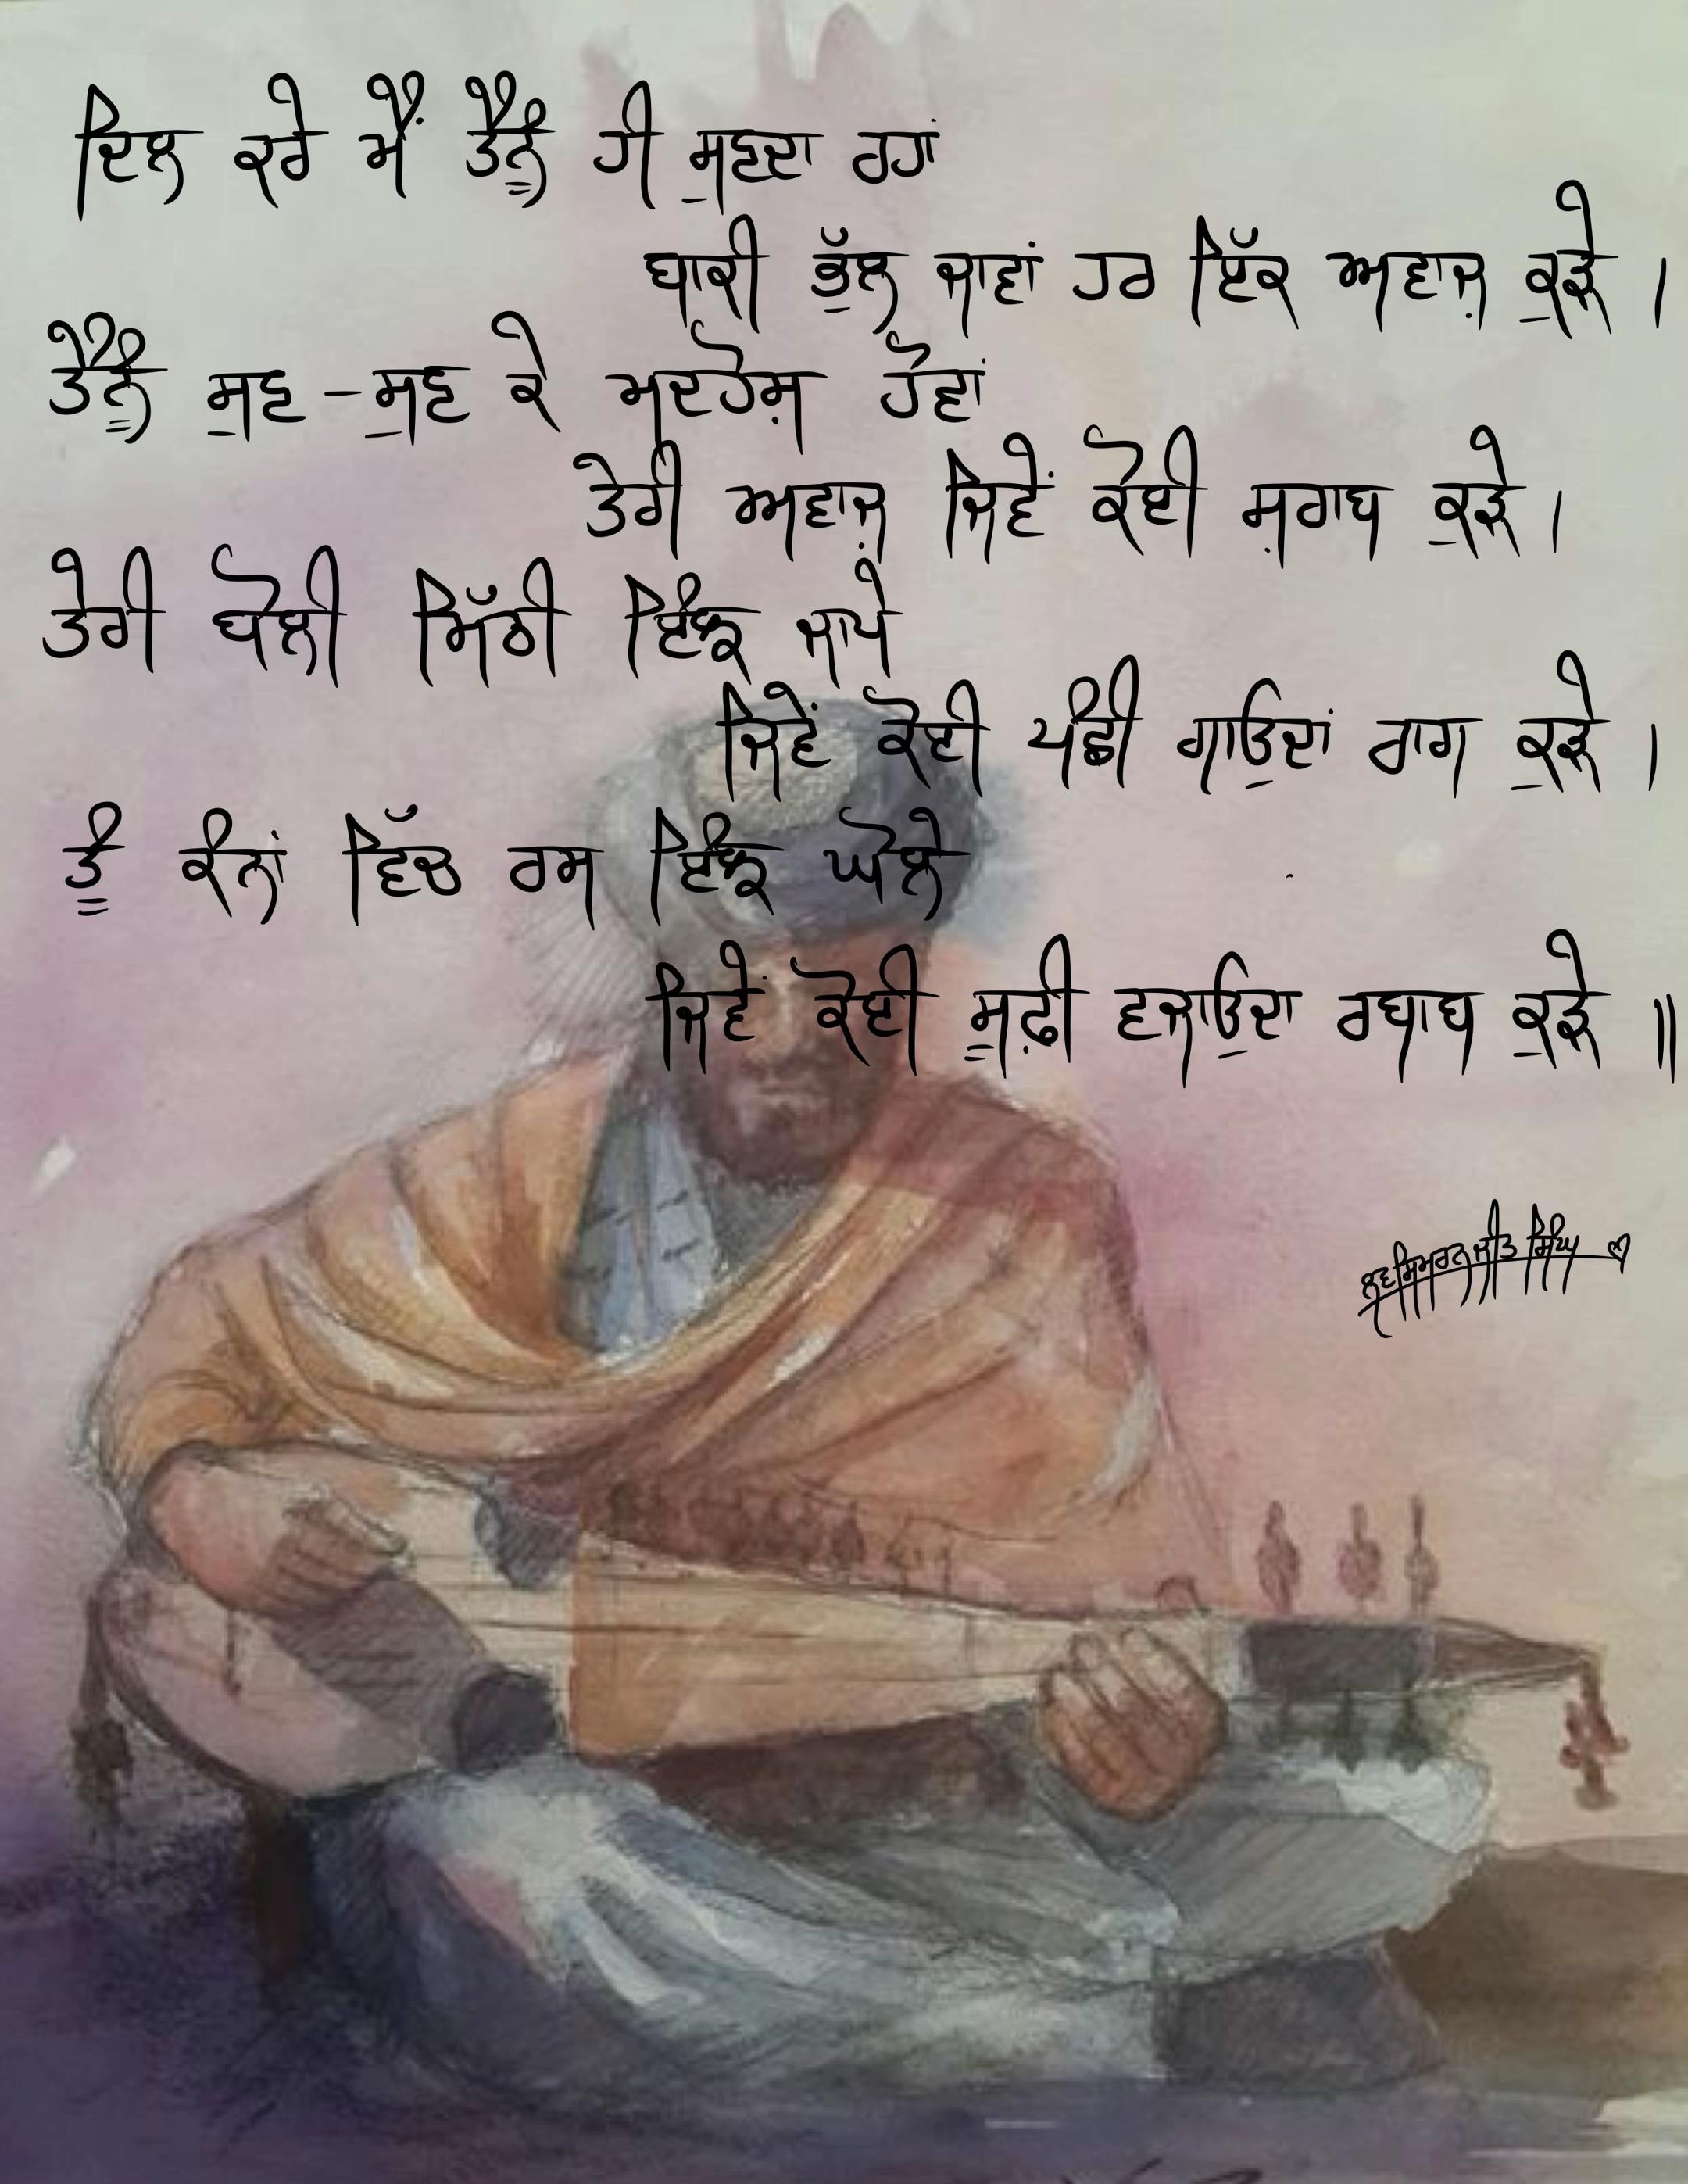 ਦਿਲ ਕਰੇ ਮੈਂ ਤੈਨੂੰ ਹੀ ਸੁਣਦਾ ਰਹਾਂ
ਬਾਕੀ ਭੁੱਲ ਜਾਵਾਂ ਹਰ ਇੱਕ ਅਵਾਜ਼ ਕੁੜੇ ।
ਤੈਨੂੰ ਸੁਣ-ਸੁਣ ਕੇ ਮਦਹੋਸ਼ ਹੋਵਾਂ
ਤੇਰੀ ਅਵਾਜ਼ ਜਿਵੇਂ ਕੋਈ ਸ਼ਰਾਬ ਕੁੜੇ ।
ਤੇਰੀ ਬੋਲੀ ਮਿੱਠੀ ਇੰਝ ਜਾਪੇ
ਜਿਵੇਂ ਕੋਈ ਪੰਛੀ ਗਾਉਦਾਂ ਰਾਗ ਕੁੜੇ ।
ਤੂੰ ਕੰਨਾਂ ਵਿੱਚ ਰਸ ਇੰਝ ਘੋਲੇ
ਜਿਵੇਂ ਕੋਈ ਸੂਫ਼ੀ ਵਜਾਉਦਾ ਰਬਾਬ ਕੁੜੇ ॥
ਲਵਸਿਮਰਨਜੀਤ ਸਿੰਘ